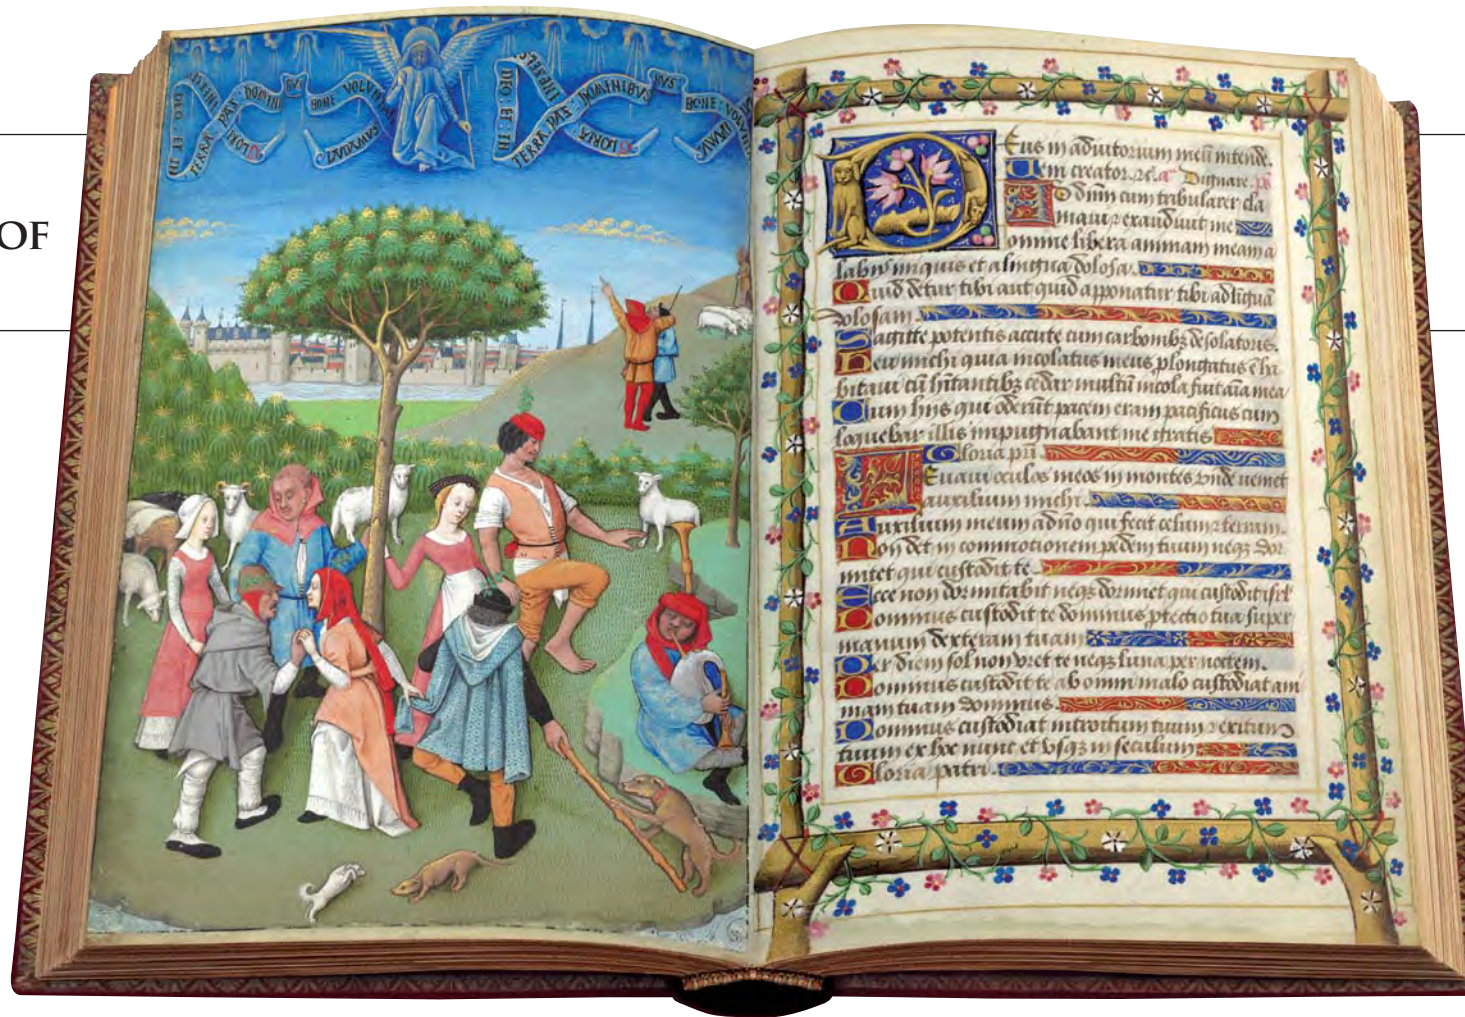 OF
DEO : ET : IN TERRA PAX : DOMINIBUS BONE VOLUN
LAUDAMUS
DEO : ET : IN TERRA PAX : DOMINIBVS BONE : VOLV
GLORIA
Deus in adiutorium meū intende.
Uem creator. Dignare. ps
Ad dnm cum tribularer cla
maui ⁊ exaudiuit me
Domine libera animam meam a
labiis iniquis et a lingua dolosa.
Quid detur tibi aut quid apponatur tibi ad liguā
dolosam
Sagitte potentis accute cum carbonibꝫ desolatoriis.
Heu michi quia incolatus meus ꝓlongatus ē ha
bitaui cū hītantibꝫ cedar multū incola fuit aīa mea
Cum hiis qui oderūt pacem eram pacificus cum
loquebar illis impugnabant me gratis
Gloria pri.
Leuaui oculos meos in montes vnde ueniet
auxilium michi.
Auxilium meum a dno qui fecit celum ⁊ terram.
Non det in commotionem pedem tuum neqꝫ dor
mitet qui custodit te
Ecce non dormitabit neqꝫ dormiet qui custodit isrl
Dominus custodit te dominus ꝓtectio tua super
manum dexteram tuam
Per diem sol non vret te neqꝫ luna per noctem.
Dominus custodit te ab omni malo custodiat ani
mam tuam dominus.
Dominus custodiat introitum tuum ⁊ exitum
tuum ex hoc nunc et vsqꝫ in seculum
Gloria patri.